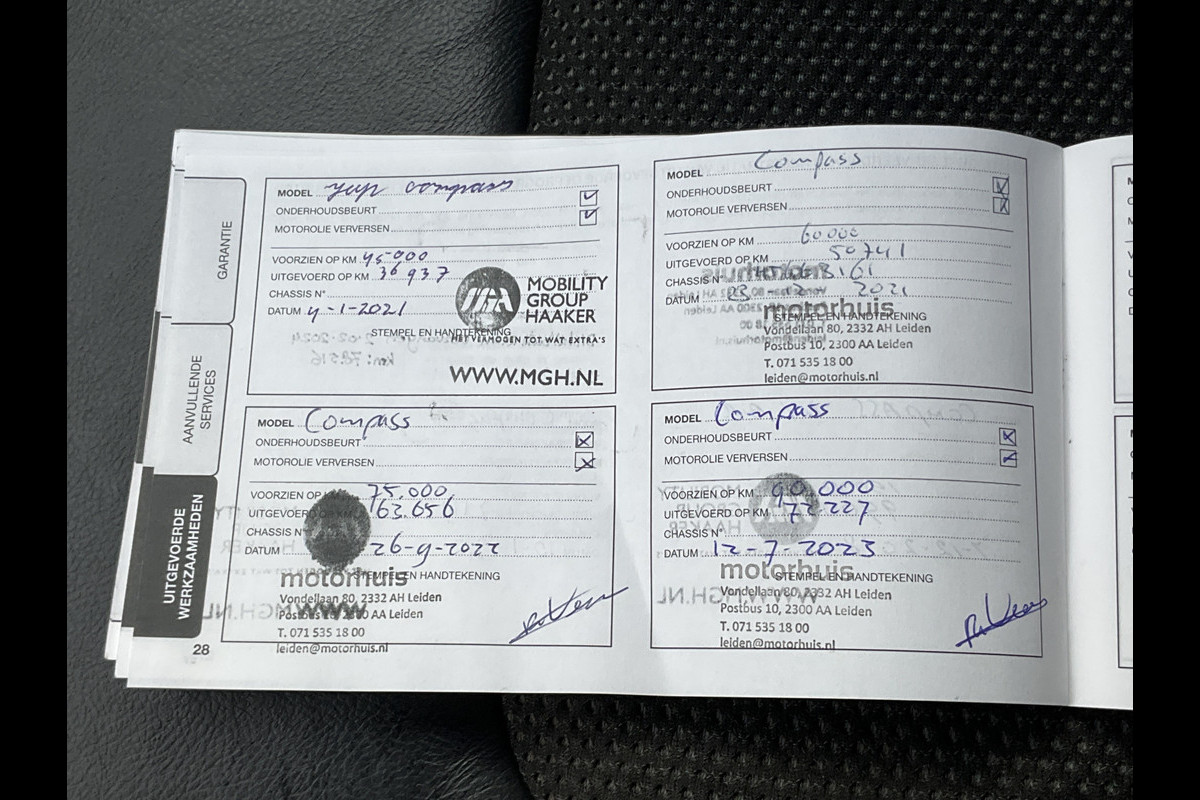 GARANTIE
AANVULLENDE
SERVICES
UITGEVOERDE
WERKZAAMHEDEN
28
MODEL Jeep compass
ONDERHOUDSBEURT
MOTOROLIE VERVERSEN
VOORZIEN OP KM 45000
UITGEVOERD OP KM 36937
CHASSIS N°
DATUM 4-1-2021
STEMPEL EN HANDTEKENING
MOBILITY
GROUP
HAAKER
HET VERMOGEN TOT WAT EXTRA'S
WWW.MGH.NL
MODEL Compass
ONDERHOUDSBEURT
MOTOROLIE VERVERSEN
VOORZIEN OP KM 60000
UITGEVOERD OP KM 50741
CHASSIS N°
DATUM 23-12-2021
motorhuis
STEMPEL EN HANDTEKENING
Vondellaan 80, 2332 AH Leiden
Postbus 10, 2300 AA Leiden
T. 071 535 18 00
leiden@motorhuis.nl
MODEL Compass
ONDERHOUDSBEURT
MOTOROLIE VERVERSEN
VOORZIEN OP KM 75.000
UITGEVOERD OP KM 63.656
CHASSIS N°
DATUM 26-9-2022
motorhuis
STEMPEL EN HANDTEKENING
Vondellaan 80, 2332 AH Leiden
Postbus 10, 2300 AA Leiden
T. 071 535 18 00
leiden@motorhuis.nl
MODEL Compass
ONDERHOUDSBEURT
MOTOROLIE VERVERSEN
VOORZIEN OP KM 90.000
UITGEVOERD OP KM 72.227
CHASSIS N°
DATUM 12-7-2023
motorhuis
STEMPEL EN HANDTEKENING
Vondellaan 80, 2332 AH Leiden
Postbus 10, 2300 AA Leiden
T. 071 535 18 00
leiden@motorhuis.nl